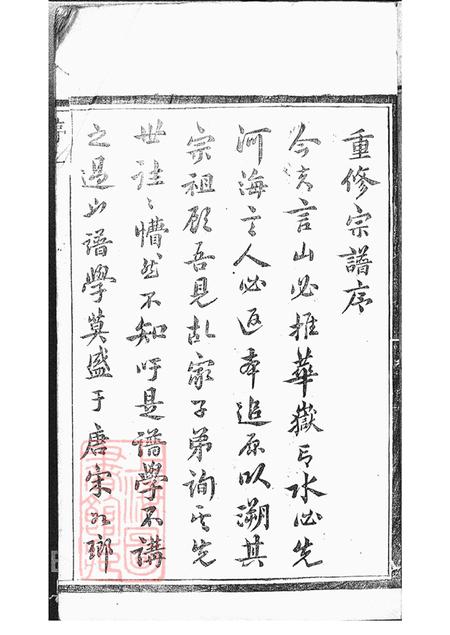 重修宗譜序
今夫言山必推華嶽言水必先
河海言人必返本追原以溯其
宗祖顧吾見故家子弟詢其先
世往〻懵然不知吁是譜學不講
之過也譜學莫盛于唐宋如瑯